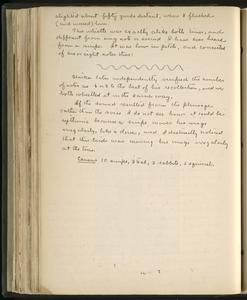 alighted about fifty yards distant, when I flushed
(and missed) him.
The whistle was exactly alike both times, and
different from any note or sound I have ever heard
from a snipe. It was low in pitch, and consisted
of six or eight notes thus:
later independently verified the number
of notes as 6 to 8 to the best of his recollection, and we
both whistled it in the same way.
If the sound resulted from the plumage
rather than the voice I do not see how it could be
rythmic because a snipe moves his wings
irregularly, like a dove, and I distinctly noticed
that this bird was moving his wings irregularly
at the time.
Census 10 snipe, 3 2 rabbits, 2 squirrel